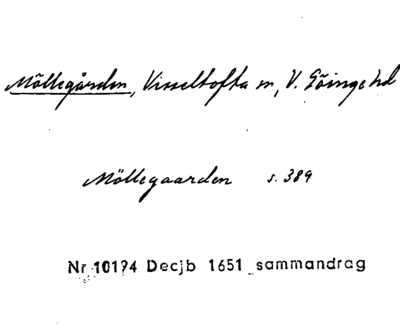 Möllegården, Visseltofta sn, V. Göinge hd
Möllegaarden s. 389
Nr 10194 Decjb 1651 sammandrag